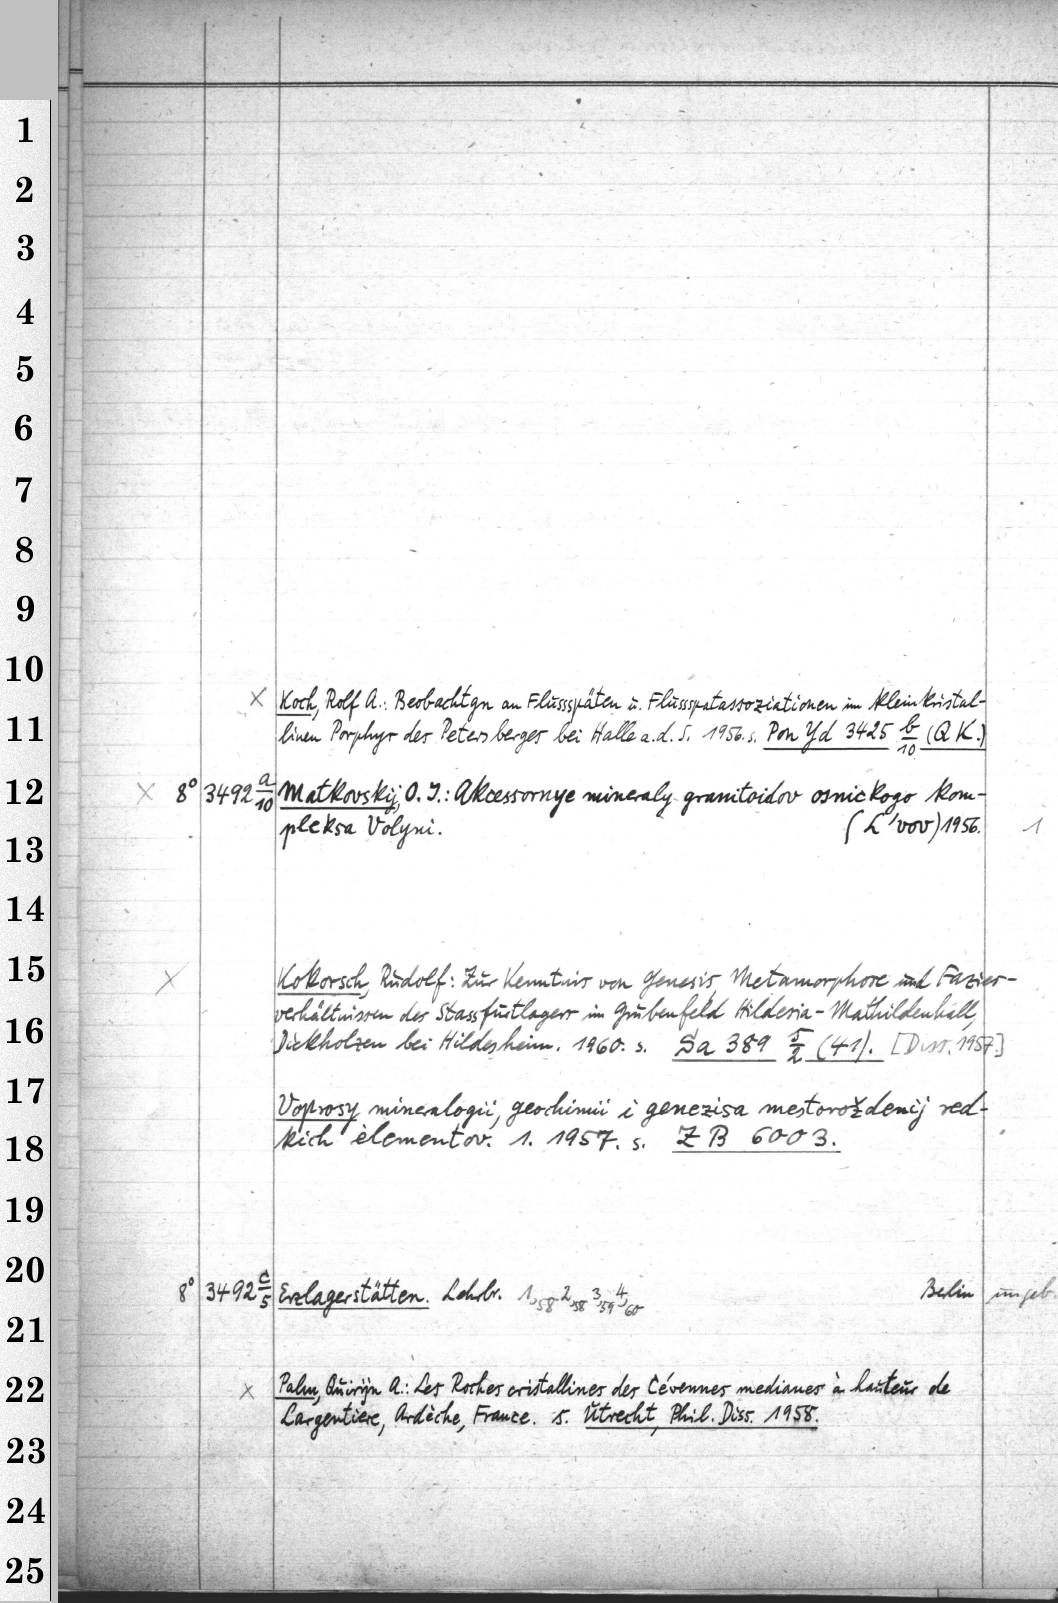 1
2
3
4
5
6
7
8
9
10
× Koch, Rolf A.: Beobachtgn an Flussspäten u. Flussspatassoziationen im kleinkristal-
11
linen Porphyr des Petersberges bei Halle a.d. S. 1956. s. Pon Yd 3425 b/10 (QK.)
12
× 8° 3492 a/10 Matkovskij, O. I.: Akcessornye mineraly granitoidov osnickogo kom-
pleksa Volyni. (L'vov) 1956. 1
13
14
15
× Kokorsch, Rudolf: Zur Kenntnis von Genesis, Metamorphose und Fazies-
verhältnissen des Stassfurtlagers im Grubenfeld Hildesia-Mathildenhall,
16
Diekholzen bei Hildesheim. 1960. s. Sa 389 5/2 (41). [Diss. 1957.]
17
Voprosy mineralogii, geochimii i genezisa mestoroždenij red-
18
kich élementov. 1. 1957. s. ZB 6003.
19
20
8° 3492 c/5 Erzlagerstätten. Lehrbr. 1,58 2,58 3,59 4,60 Berlin ungeb.
21
22
× Palm, Quirijn A.: Les Roches cristallines des Cévennes medianes à hauteur de
Largentière, Ardèche, France. s. Utrecht, Phil. Diss. 1958.
23
24
25